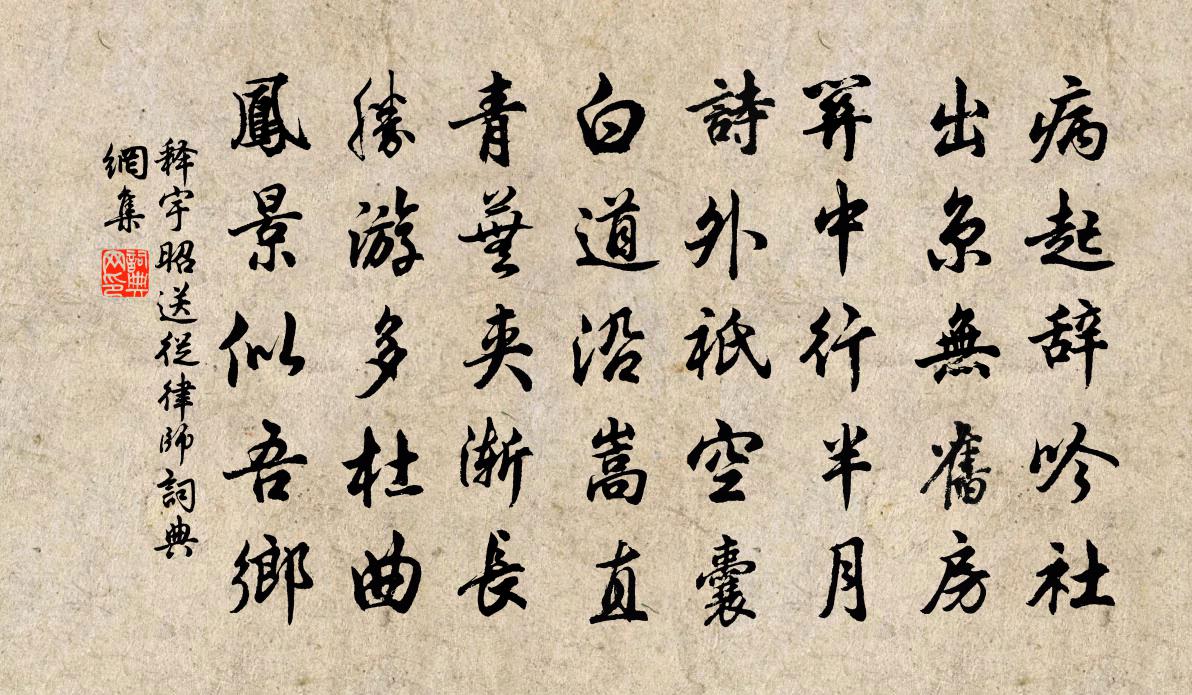 病起辞吟社
出京無舊房
筭中行半月
詩外祇空囊
白道沿嵩直
青蕪夾漸長
勝游多杜曲
鳳景似吾鄉
释宇昭送從律師詞典
網集
詞典
网印